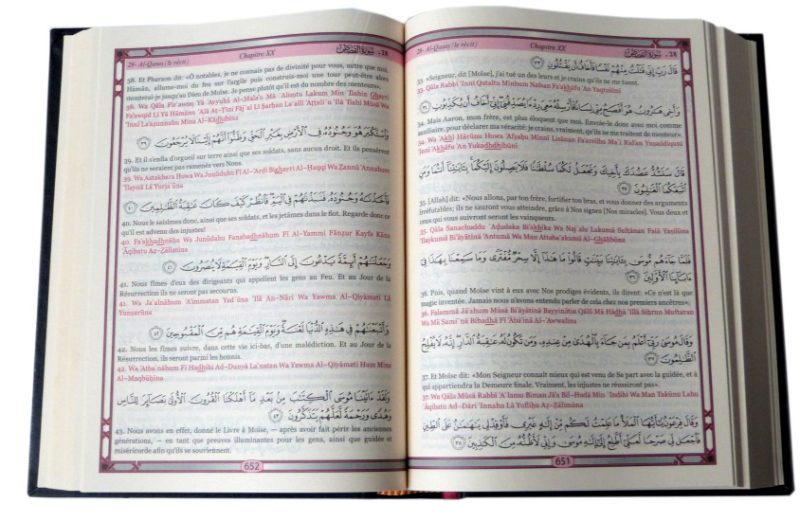 28- Al-Qasas (le récit) Chapitre XX سورة القصص - 28
قَالَ رَبِّ إِنِّي قَتَلْتُ مِنْهُمْ نَفْسًا فَأَخَافُ أَن يَقْتُلُونِ ٣٣
33. «Seigneur, dit [Moïse], j'ai tué un des leurs et je crains qu'ils ne me tuent.
33. Qāla Rabbi 'Innī Qataltu Minhum Nafsāan Fa'akhāfu 'An Yaqtulūni
وَأَخِي هَـٰرُونُ هُوَ أَفْصَحُ مِنِّي لِسَانًا فَأَرْسِلْهُ مَعِيَ رِدْءًا يُصَدِّقُنِي إِنِّي أَخَافُ أَن يُكَذِّبُونِ ٣٤
34. Mais Aaron, mon frère, est plus éloquent que moi. Envoie-le donc avec moi comme
auxiliaire, pour déclarer ma véracité: je crains, vraiment, qu'ils ne me traitent de menteur».
34. Wa 'Akhī Hārūnu Huwa 'Afşaĥu Minnī Lisānāan Fa'arsilhu Ma`ī Rid'an Yuşaddiqunī
'Innī 'Akhāfu 'An Yukadhdhibūni
قَالَ سَنَشُدُّ عَضُدَكَ بِأَخِيكَ وَنَجْعَلُ لَكُمَا سُلْطَـٰنًا فَلَا يَصِلُونَ إِلَيْكُمَا بِـَٔايَـٰتِنَآ أَنتُمَا وَمَنِ
ٱتَّبَعَكُمَا ٱلْغَـٰلِبُونَ ٣٥
35. [Allah] dit: «Nous allons, par ton frère, fortifier ton bras, et vous donner des arguments
irréfutables; ils ne sauront vous atteindre, grâce à Nos signes [Nos miracles]. Vous deux et
ceux qui vous suivront seront les vainqueurs.
35. Qāla Sanashuddu `Ađudaka Bi'akhīka Wa Naj`alu Lakumā Sulţānāan Falā Yaşilūna
'Ilaykumā Bi'āyātinā 'Antumā Wa Mani Attaba`akumā Al-Ghālibūna
فَلَمَّا جَآءَهُم مُّوسَىٰ بِـَٔايَـٰتِنَا بَيِّنَـٰتٍ قَالُوا۟ مَا هَـٰذَآ إِلَّا سِحْرٌ مُّفْتَرًى وَمَا سَمِعْنَا بِهَـٰذَا فِىٓ
ءَابَآئِنَا ٱلْأَوَّلِينَ ٣٦
36. Puis, quand Moïse vint à eux avec Nos prodiges évidents, ils dirent: «Ce n'est là que
magie inventée. Jamais nous n'avons entendu parler de cela chez nos premiers ancêtres».
36. Falammā Jā'ahum Mūsá Bi'āyātinā Bayyinātin Qālū Mā Hādhā 'Illā Siĥrun Muftaran
Wa Mā Sami`nā Bihadhā Fī 'Ābā'inā Al-'Awwalīna
وَقَالَ مُوسَىٰ رَبِّىٓ أَعْلَمُ بِمَن جَآءَ بِٱلْهُدَىٰ مِنْ عِندِهِۦ وَمَن تَكُونُ لَهُۥ عَـٰقِبَةُ ٱلدَّارِ إِنَّهُۥ لَا يُفْلِحُ
ٱلظَّـٰلِمُونَ ٣٧
37. Et Moïse dit: «Mon Seigneur connaît mieux qui est venu de Sa part avec la guidée, et à
qui appartiendra la Demeure finale. Vraiment, les injustes ne réussiront pas».
37. Wa Qāla Mūsá Rabbī 'A`lamu Biman Jā'a Bil-Hudá Min `Indihi Wa Man Takūnu Lahu
`Āqibatu Ad-Dāri 'Innahu Lā Yufliĥu Až-Žālimūna
وَقَالَ فِرْعَوْنُ يَـٰٓأَيُّهَا ٱلْمَلَأُ مَا عَلِمْتُ لَكُم مِّنْ إِلَـٰهٍ غَيْرِى فَأَوْقِدْ لِى يَـٰهَـٰمَـٰنُ عَلَى ٱلطِّينِ
فَٱجْعَل لِّى صَرْحًا لَّعَلِّىٓ أَطَّلِعُ إِلَىٰٓ إِلَـٰهِ مُوسَىٰ وَإِنِّى لَأَظُنُّهُۥ مِنَ ٱلْكَـٰذِبِينَ ٣٨
651
28- Al-Qasas (le récit) Chapitre XX سورة القصص - 28
38. Et Pharaon dit: «Ô notables, je ne connais pas de divinité pour vous, autre que moi.
Hāmān, allume-moi du feu sur l'argile puis construis-moi une tour peut-être alors
monterai-je jusqu'au Dieu de Moïse. Je pense plutôt qu'il est du nombre des menteurs».
38. Wa Qāla Fir`awnu Yā 'Ayyuhā Al-Mala'u Mā `Alimtu Lakum Min 'Ilahin Ghayrī
Fa'awqid Lī Yā Hāmānu `Alá Aţ-Ţīni Fāj`al Lī Şarĥan La`allī 'Aţţali`u 'Ilá 'Ilahi Mūsá Wa
'Innī La'ažunnuhu Mina Al-Kādhibīna
وَٱسْتَكْبَرَ هُوَ وَجُنُودُهُۥ فِى ٱلْأَرْضِ بِغَيْرِ ٱلْحَقِّ وَظَنُّوٓا۟ أَنَّهُمْ إِلَيْنَا لَا يُرْجَعُونَ ٣٩
39. Et il s'enfla d'orgueil sur terre ainsi que ses soldats, sans aucun droit. Et ils pensèrent
qu'ils ne seraient pas ramenés vers Nous.
39. Wa Astakbara Huwa Wa Junūduhu Fī Al-'Arđi Bighayri Al-Ĥaqqi Wa Žannū 'Annahum
'Ilaynā Lā Yurja`ūna
فَأَخَذْنَـٰهُ وَجُنُودَهُۥ فَنَبَذْنَـٰهُمْ فِى ٱلْيَمِّ فَٱنظُرْ كَيْفَ كَانَ عَـٰقِبَةُ ٱلظَّـٰلِمِينَ ٤٠
40. Nous le saisîmes donc, ainsi que ses soldats, et les jetâmes dans le flot. Regarde donc ce
qu'il est advenu des injustes!
40. Fa'akhadhnāhu Wa Junūdahu Fanabadhnāhum Fī Al-Yammi Fānžur Kayfa Kāna
`Āqibatu Až-Žālimīna
وَجَعَلْنَـٰهُمْ أَئِمَّةً يَدْعُونَ إِلَى ٱلنَّارِ وَيَوْمَ ٱلْقِيَـٰمَةِ لَا يُنصَرُونَ ٤١
41. Nous fîmes d'eux des dirigeants qui appellent les gens au Feu. Et au Jour de la
Résurrection ils ne seront pas secourus.
41. Wa Ja`alnāhum 'A'immatan Yad`ūna 'Ilá An-Nāri Wa Yawma Al-Qiyāmati Lā
Yunşarūna
وَأَتْبَعْنَـٰهُمْ فِى هَـٰذِهِ ٱلدُّنْيَا لَعْنَةً وَيَوْمَ ٱلْقِيَـٰمَةِ هُم مِّنَ ٱلْمَقْبُوحِينَ ٤٢
42. Nous les fîmes suivre, dans cette vie ici-bas, d'une malédiction. Et au Jour de la
Résurrection, ils seront parmi les honnis.
42. Wa 'Atba`nāhum Fī Hadhihi Ad-Dunyā La`natan Wa Yawma Al-Qiyāmati Hum Mina
Al-Maqbūĥīna
وَلَقَدْ ءَاتَيْنَا مُوسَى ٱلْكِتَـٰبَ مِنۢ بَعْدِ مَآ أَهْلَكْنَا ٱلْقُرُونَ ٱلْأُولَىٰ بَصَآئِرَ لِلنَّاسِ
وَهُدًى وَرَحْمَةً لَّعَلَّهُمْ يَتَذَكَّرُونَ ٤٣
43. Nous avons en effet, donné le Livre à Moïse, – après avoir fait périr les anciennes
générations, – en tant que preuves illuminantes pour les gens, ainsi que guidée et
miséricorde afin qu'ils se souviennent.
652